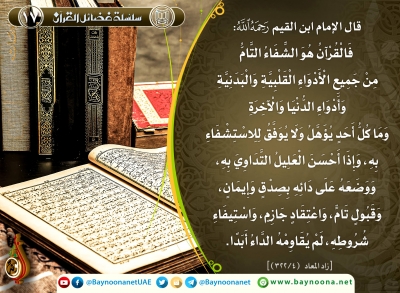 سلسلة فضائل القرآن
١٧
قال الإمام ابن القيم رَحِمَهُ اللَّهُ:
فَالْقُرْآنُ هُوَ الشِّفَاءُ التَّامُّ
مِنْ جَمِيعِ الْأَدْوَاءِ الْقَلْبِيَّةِ وَالْبَدَنِيَّةِ
وَأَدْوَاءِ الدُّنْيَا وَالْآخِرَةِ
وَمَا كُلُّ أَحَدٍ يُؤَهَّلُ وَلَا يُوَفَّقُ لِلِاسْتِشْفَاءِ
بِهِ، وَإِذَا أَحْسَنَ الْعَلِيلُ التَّدَاوِيَ بِهِ،
وَوَضَعَهُ عَلَى دَائِهِ بِصِدْقٍ وَإِيمَانٍ،
وَقَبُولٍ تَامٍّ، وَاعْتِقَادٍ جَازِمٍ، وَاسْتِيفَاءِ
شُرُوطِهِ، لَمْ يُقَاوِمْهُ الدَّاءُ أَبَدًا.
[زاد المعاد (٣٢٢/٤)]
@BaynoonanetUAE
@Baynoonanet
www.baynoona.net